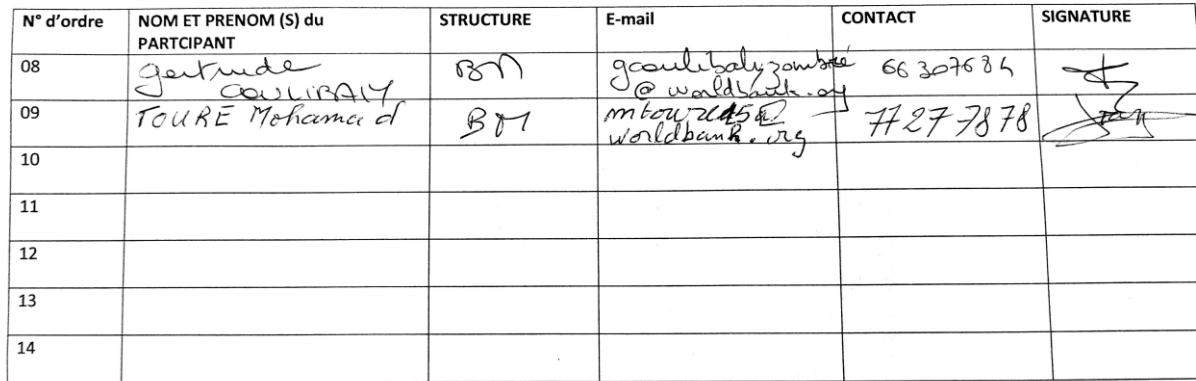 N° d'ordre NOM ET PRENOM (S) du PARTCIPANT STRUCTURE E-mail CONTACT SIGNATURE
08 Gertrude COULIBALY BM gcoulibalyzombre@worldbank.org 66307684
09 TOURE Mohamad BM @worldbank.org 77277878
10
11
12
13
14